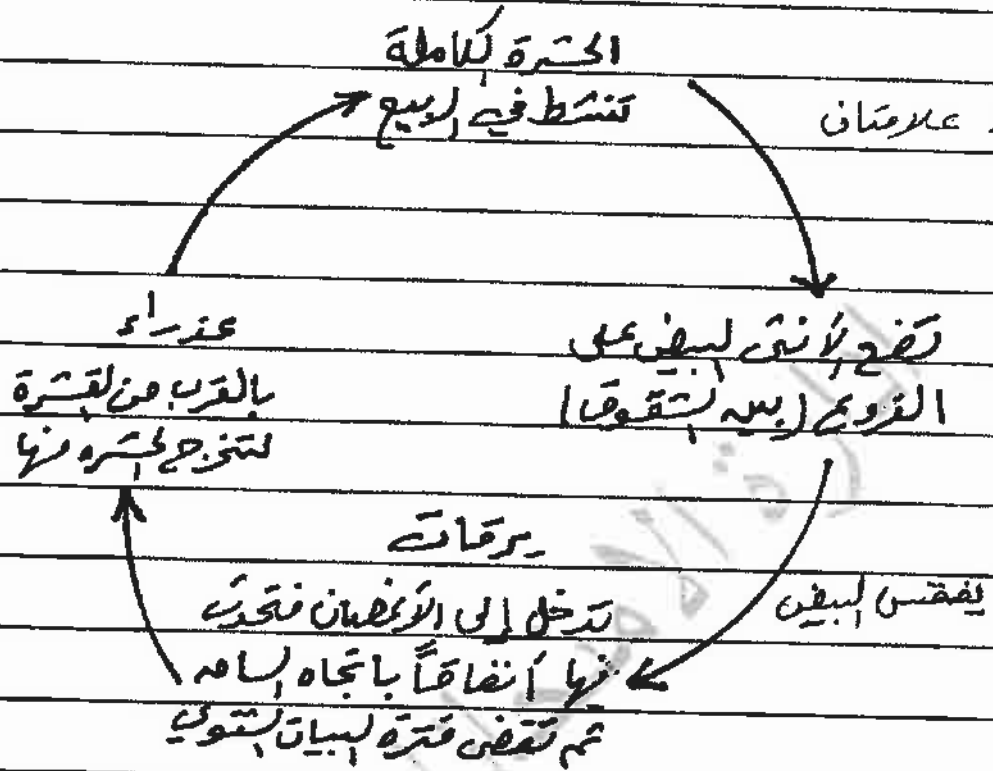 الحشرة الكاملة
تنشط في الربيع
علامتان
تضع الأنثى البيض على
الفروع (بين الشقوق)
يفقس البيض
يرقات
تدخل إلى الأغصان فتحدث
فيها أنفاقاً باتجاه الساق
ثم تقضي فترة البيات الشتوي
عذراء
بالقرب من القشرة
لتخرج الحشرة منها